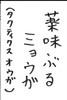 薬味ぶる
ミョウが
(タクティクスオウガ)